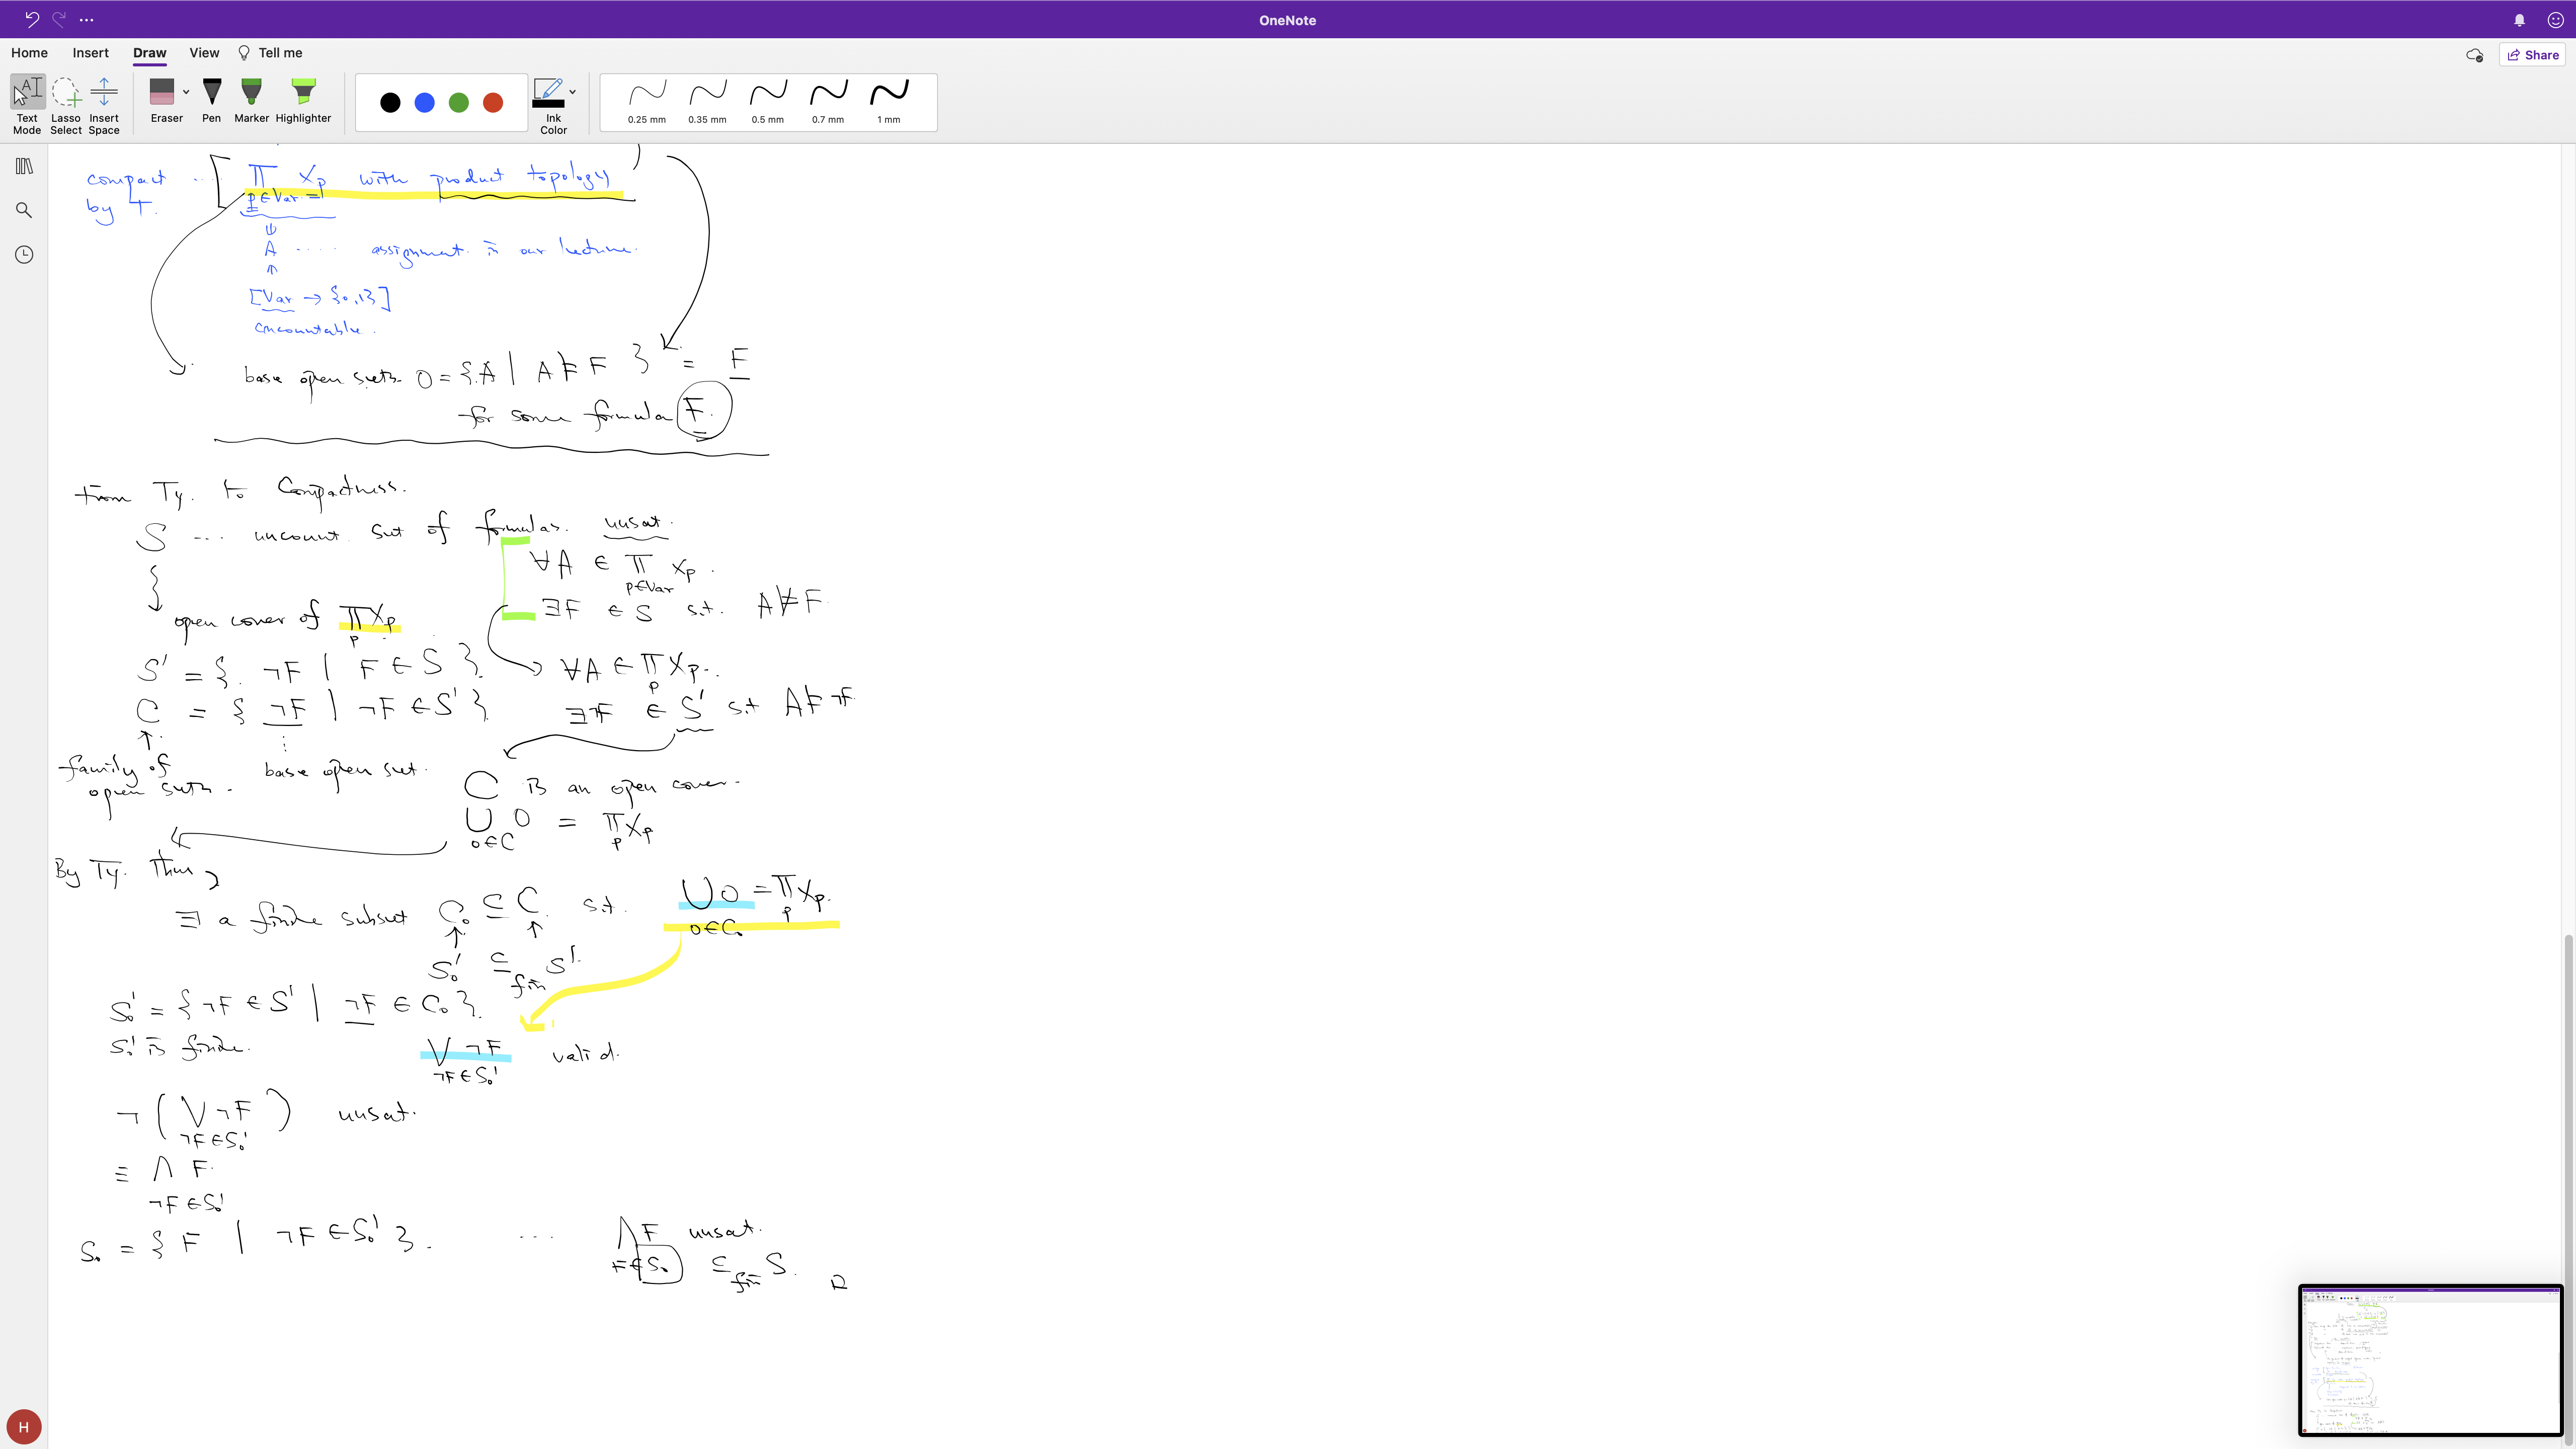 OneNote
Home Insert Draw View Tell me
Share
Text Mode
Lasso Select
Insert Space
Eraser
Pen
Marker
Highlighter
Ink Color
0.25 mm 0.35 mm 0.5 mm 0.7 mm 1 mm
compact by T. ... [ ∏ Xp with product topology
p∈Var
A .... assignment in our lecture.
[Var → {0,1}]
uncountable.
base open sets O = {A | A ⊨ F } = F
for some formula F.
From Ty. to Compactness.
S ... uncount. set of formulas. unsat.
∀A ∈ ∏ Xp.
p∈Var
∃F ∈ S s.t. A ⊭ F.
open cover of ∏ Xp
p
S' = { ¬F | F ∈ S }. ∀A ∈ ∏ Xp.
p
C = { ¬F | ¬F ∈ S' }. ∃¬F ∈ S' s.t A ⊨ ¬F.
family of open sets. base open set.
C is an open cover.
∪ O = ∏ Xp
O∈C p
By Ty. Thm,
∃ a finite subset C₀ ⊆ C s.t. ∪ O = ∏ Xp.
O∈C₀ p
S₀' ⊆fin S'.
S₀' = {¬F ∈ S' | ¬F ∈ C₀ }.
S₀' is finite.
∨ ¬F valid.
¬F ∈ S₀'
¬ ( ∨ ¬F ) unsat.
¬F ∈ S₀'
≡ ∧ F.
¬F ∈ S₀'
S₀ = { F | ¬F ∈ S₀' }. .... ∧ F unsat.
F ∈ S₀ ⊆fin S. □
H